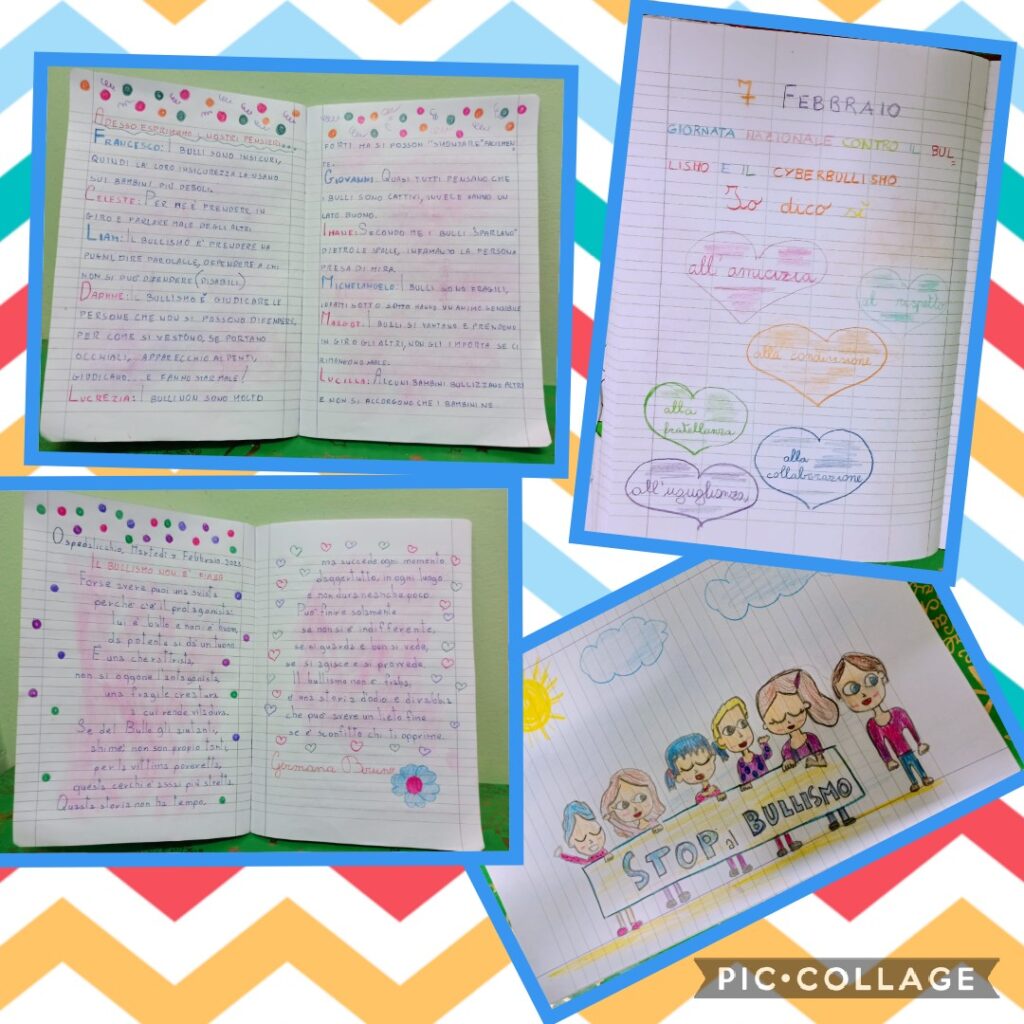 ADESSO ESPRIMIAMO I NOSTRI PENSIERI...
FRANCESCO: I BULLI SONO INSICURI,
QUINDI LA LORO INSICUREZZA LA USANO
SUI BAMBINI PIÙ DEBOLI.
CELESTE: PER ME È PRENDERE IN
GIRO E PARLARE MALE DEGLI ALTRI.
LIAM: IL BULLISMO È PRENDERE HA
PUGNI, DIRE PAROLACCE, OFFENDERE A CHI
NON SI PUÒ DIFENDERE (DISABILI)
DAPHNE: IL BULLISMO È GIUDICARE LE
PERSONE CHE NON SI POSSONO DIFENDERE,
PER COME SI VESTONO, SE PORTANO
OCCHIALI, APPARECCHIO AI DENTI,
GIUDICANO... E FANNO STAR MALE!
LUCREZIA: I BULLI NON SONO MOLTO
FORTI MA SI POSSON "SMONTARE" FACILMEN
TE.
GIOVANNI: QUASI TUTTI PENSANO CHE
I BULLI SONO CATTIVI, INVECE HANNO UN
LATO BUONO.
SECONDO ME I BULLI "SPARLANO"
DIETRO LE SPALLE, INFAMANO LA PERSONA
PRESA DI MIRA.
MICHELANGELO: I BULLI SONO FRAGILI,
SOTTO SOTTO HANNO UN ANIMO SENSIBILE
MARGOT: I BULLI SI VANTANO E PRENDONO
IN GIRO GLI ALTRI, NON GLI IMPORTA SE CI
RIMANGONO MALE.
LUCILLA: ALCUNI BAMBINI BULLIZZANO ALTRI
E NON SI ACCORGONO CHE I BAMBINI NE
7 FEBBRAIO
GIORNATA NAZIONALE CONTRO IL BUL
LISMO E IL CYBERBULLISMO
Io dico sì
all'amicizia
al rispetto
alla condivisione
alla
fratellanza
alla
collaborazione
all'uguaglianza
Ospedalicchio, Martedì 7 Febbraio 2023
IL BULLISMO NON È FIABA
Forse avere puoi una svista
perché c'è il protagonista:
lui è bullo e non è buon,
da potente si dà un tuono.
È una cheratirista,
non si oppone l'antagonista
una fragile creatura
a cui rende vita dura.
Se del Bullo gli aiutanti,
ahimè, non son proprio tanti,
per la vittima poveretta,
questa cerchi è assai più stretta
Questa storia non ha tempo,
ma succede ogni momento
dappertutto, in ogni luogo
e non dura neanche poco.
Può finire solamente
se non si è indifferente,
se si guarda e ben si vede,
se si agisce e si provvede.
Il bullismo non è fiaba,
è una storia d'odio e di rabbia
che può avere un lieto fine
se è sconfitto chi ti opprime.
Germana Bruno
STOP al BULLISMO
PIC•COLLAGE